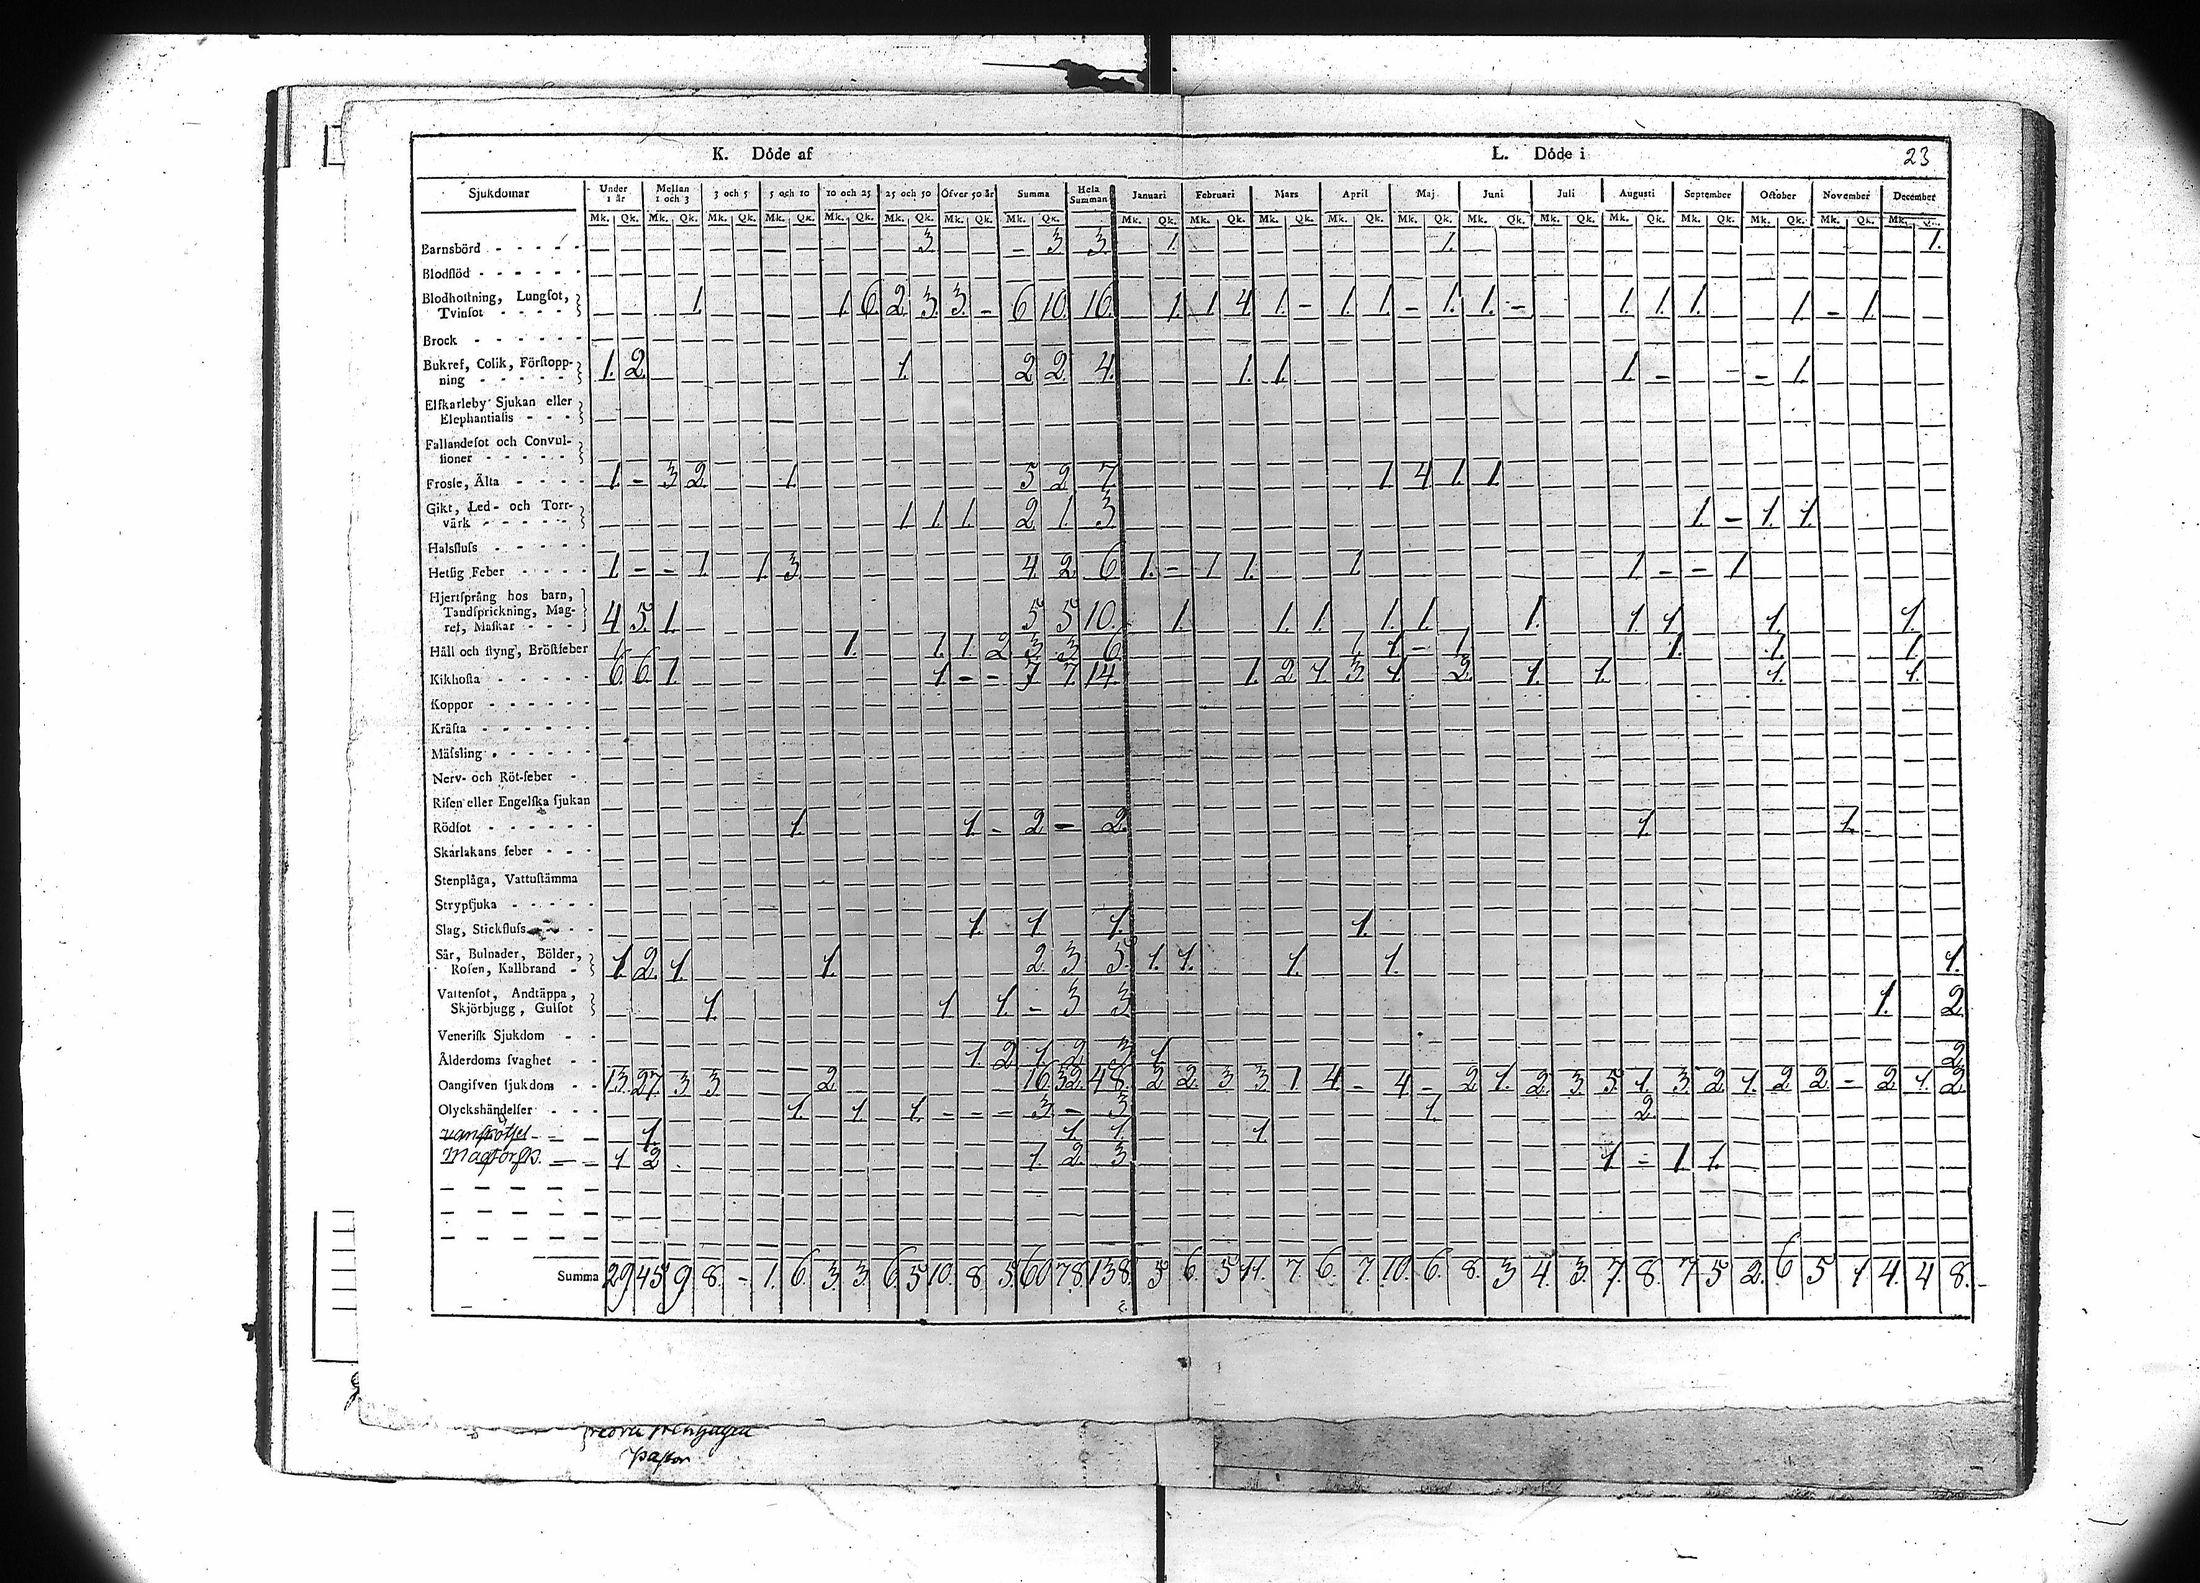 K. Döde af
L. Döde i 23
Sjukdomar Under 1 år Mellan 1 och 3 3 och 5 5 och 10 10 och 25 25 och 50 Öfver 50 år Summa Hela Summan Januari Februari Mars April Maj Juni Juli Augusti September October November December
Mk. Qk. Mk. Qk. Mk. Qk. Mk. Qk. Mk. Qk. Mk. Qk. Mk. Qk. Mk. Qk. Mk. Qk. Mk. Qk. Mk. Qk. Mk. Qk. Mk. Qk. Mk. Qk. Mk. Qk. Mk. Qk. Mk. Qk. Mk. Qk. Mk. Qk. Mk.
Barnsbörd 3 3 3. 1. 1. 1.
Blodflöd
Blodhostning, Lungsot,
Tvinsot 1. 1. 6. 2. 3. 3. - 6 10. 16. 1. 1 4 1. - 1. 1. - 1. 1. - 1. 1. 1. 1. - 1.
Brock
Bukref, Colik, Förstopp-
ning 1. 2. 1. 2 2. 4. 1. 1. 1. - - 1.
Elfkarleby Sjukan eller
Elephantiasis
Fallandesot och Convul-
sioner
Frossе, Älta 1. - 3 2. 1. 5 2. 7. 1. 4 1. 1.
Gikt, Led- och Torr-
värk 1 1. 1. 2 1. 3. 1. - 1. 1.
Halsfluss
Hetsig Feber 1. - - 1. 1. 3. 4. 2. 6. 1. - 1 1. 1. 1. - - 1
Hjertsprång hos barn,
Tandsprickning, Mag-
ref, Maskar 4 5. 1. 5 5 10. 1. 1. 1. 1. 1. 1. 1. 1. 1. 1.
Håll och styng, Bröstfeber 1. 1. 1. 2 3 3 6. 1. 1. - 1. 1. 1. 1.
Kikhosta 6. 6. 1. 1. - - 7 7. 14. 1. 2. 1. 3. 1. 2. 1. 1. 1. 1.
Koppor
Kräfta
Mässling
Nerv- och Röt-feber
Risen eller Engelska sjukan
Rödsot 1. 1. - 2 - 2. 1. 1.
Skarlakans feber
Stenplåga, Vattustämma
Strypsjuka
Slag, Stickfluss 1. 1. 1. 1.
Sår, Bulnader, Bölder,
Rosen, Kallbrand 1. 2. 1. 1. 2. 3 5. 1. 1. 1. 1. 1.
Vattensot, Andtäppa,
Skjörbjugg, Gulsot 1. 1. 1. - 3 3 1. 2.
Venerisk Sjukdom
Ålderdoms svaghet 1. 2 1. 2. 3 1 2
Oangifven sjukdom 13. 27. 3 3. 2. 16. 32. 48. 2 2. 3 3. 1 4. - 4. - 2 1. 2. 3. 5. 1. 3. 2 1. 2 2. - 2. 1. 2.
Olyckshändelser 1. 1. 1. - - - 3. - 3 1. 2.
vanskötsel 1. 1. 1. 1
1 2. 1. 2. 3 1 - 1. 1.
Summa 29 45 9. 8. - 1. 6. 3. 3. 6. 5. 10. 8. 5. 60 78. 138. 5 6. 5 11. 7. 6. 7. 10. 6. 8. 3 4. 3. 7. 8. 7 5 2. 6 5 1 4. 4 8.
Pastor